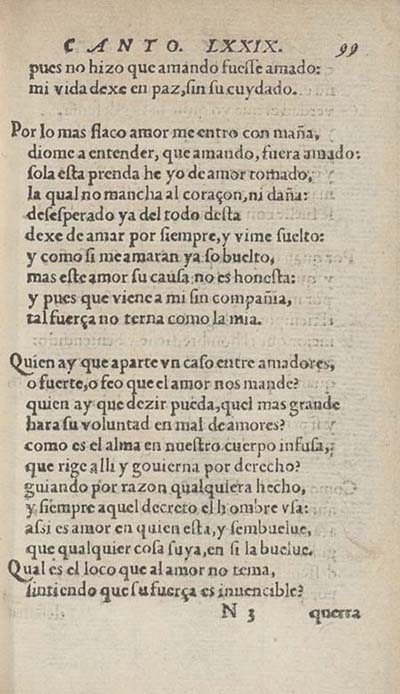 CANTO. LXXIX. 99
pues no hizo que amando fuesse amado:
mi vida dexe en paz, sin su cuydado.
Por lo mas flaco amor me entro con maña,
diome a entender, que amando, fuera amado:
sola esta prenda he yo de amor tomado,
la qual no mancha al coraçon, ni daña:
desesperado ya del todo desta
dexe de amar por siempre, y vime suelto:
y como si me amaran ya so buelto,
mas este amor su causa no es honesta:
y pues que viene a mi sin compañia,
tal fuerça no terna como la mia.
Quien ay que aparte vn caso entre amadores,
o fuerte, o feo que el amor nos mande?
quien ay que dezir pueda, quel mas grande
hara su voluntad en mal de amores?
como es el alma en nuestro cuerpo infusa,
que rige alli y gouierna por derecho?
guiando por razon qualquiera hecho,
y siempre aquel decreto el hombre vsa:
assi es amor en quien esta, y sembuelue,
que qualquier cosa suya, en si la buelue.
Qual es el loco que al amor no tema,
sintiendo que su fuerça es inuencible?
N 3 querra